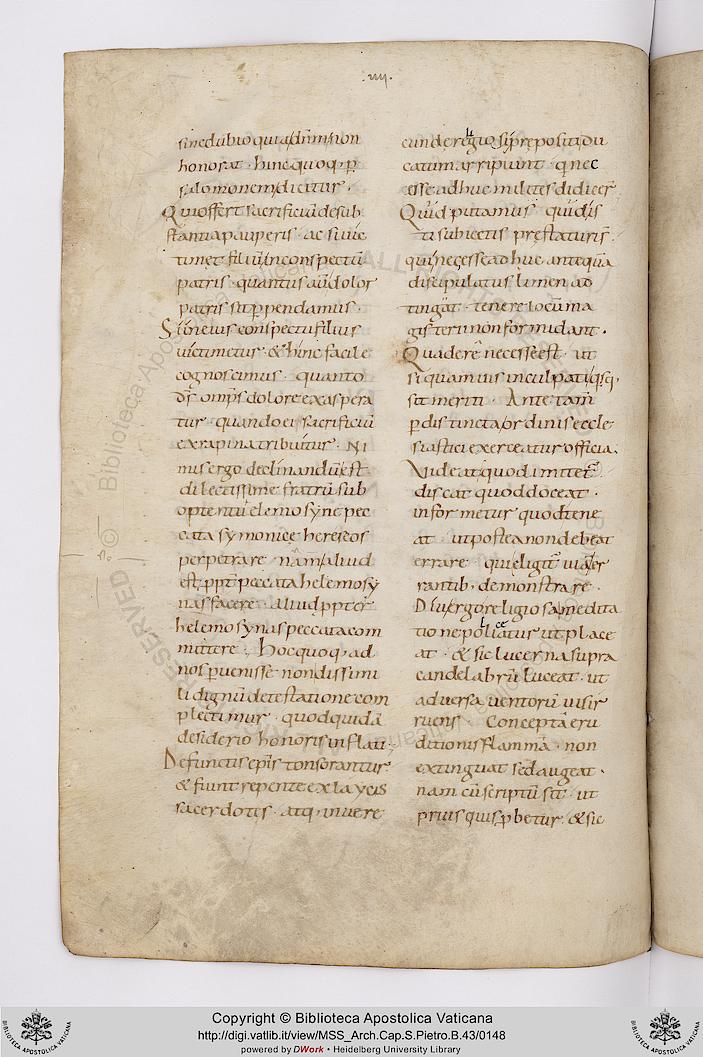 .IIII.
sine dubio quia dn̄m non
honorat · hinc quoq; ꝑ
salomonem dicitur ·
Qui offert sacrificiū de sub
stantia pauperis · ac si uic
timet filiū in conspectu
patris · quantus aūt dolor
patris sit ꝑpendamus ·
Si in eius conspectu filius
uictimetur · & hinc facile
cognoscimus · quanto
ds̄ omps̄ dolore exaspera
tur · quando ei sacrificiū
ex rapina tribuitur · Ni
mis ergo declinandū est
dilectissime fratrū sub
optentū elemosyne pec
cata symoniece hereseos
perpetrare · nā aliud
est ppt̄ peccata helemosy
nas facere · aliud ppter
helemosynas peccata com
mittere · Hoc quoq; ad
nos ꝑuenisse non dissimi
li dignū detestatione com
plectimur · quod quidā
desiderio honoris inflati ·
Defunctis ep̄is tonsorantur
& fiunt repente ex laycis
sacerdotes · atq; inuere
cunde regio si prepositi du
catum arripiunt · q̄ nec
esse adhuc milites didicer̄
Quid putamus · qui dis
ti subiectis prestaturi s̄
qui necesse adhuc anteq̄uā
discipulatus limen ad
tingāt · tenere locū ma
gisterii non formidant ·
Qua de rē necesse est · ut
si quamuis inculpati q̄sq;
sit meriti · Ante tam̄
ꝑ distincta ordinis eccle
siastici exerceatur officia ·
Uideat quod imitet̄
discat quod doceat ·
informetur quod tene
at · ut postea non debeat
errare · qui eligit̄ uia er
rantib; demonstrare ·
Diu ergo religiosa medita
tione poliatur ut place
at · & sic lucerna supra
candelabrū luceat · ut
aduersa uentorū uis ir
ruens · Conceptā eru
ditionis flammā · non
extinguat sed augeat ·
nam cū scriptū sit · ut
prius quis ꝓbetur · & sic
Copyright © Biblioteca Apostolica Vaticana
http://digi.vatlib.it/view/MSS_Arch.Cap.S.Pietro.B.43/0148
powered by DWork • Heidelberg University Library